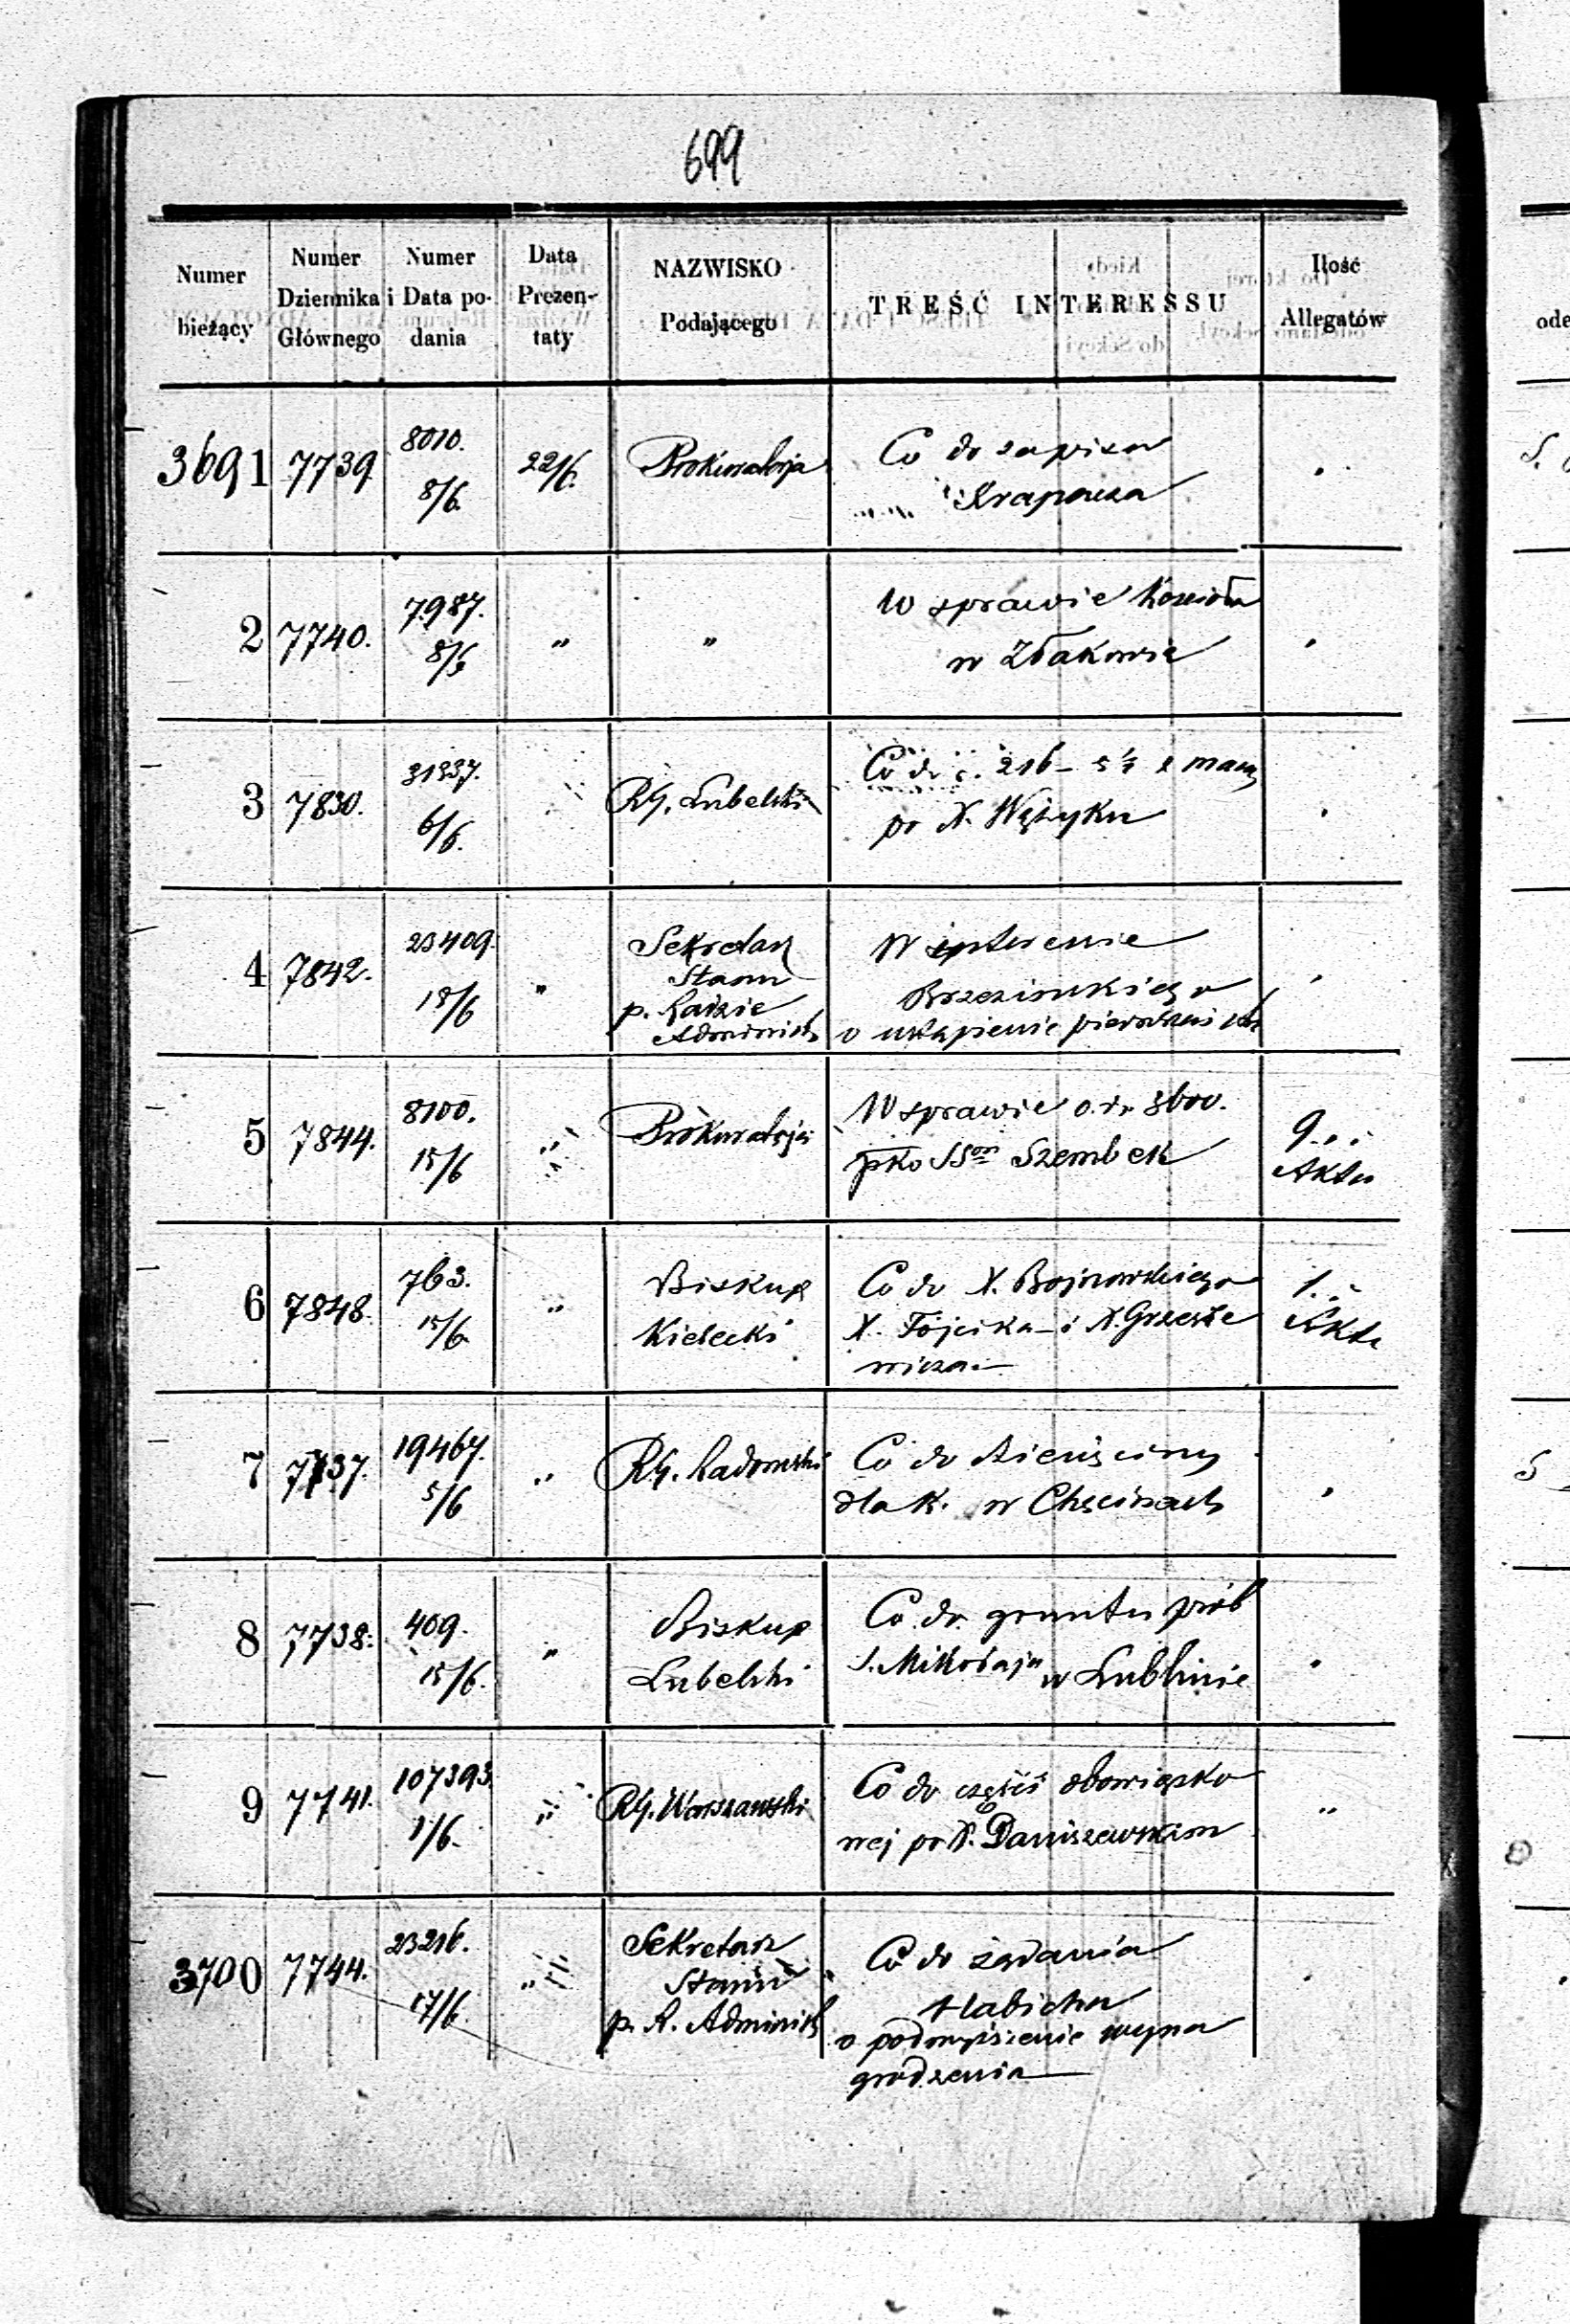 699
Numer bieżący | Numer Dziennika Głównego | Numer i Data podania | Data Prezentaty | NAZWISKO Podającego | TREŚĆ INTERESSU | Ilość Allegatów
3691 7739 8010. 22/6. Prokuratorja Co do zapisu
8/6.
2 7740. 7987. " " W sprawie kościoła
8/6 w Złakowie
3 7830. 31337. RG. Lubelski Co do 216
6/6. po X. Wężyku
4 7842. 23409. " Sekretarz W interesie
18/6 Stanu Brzezińskiego
p. Radzie o ustąpienie
Administ
5 7844. 8100. " Prokuratorja W sprawie o 3600. 9
15/6 pko SSom Szembek Akta
6 7848. 763. " Biskup Co do X. Bojnowskiego 1.
15/6 Kielecki X. Tojcika i X. Grzesze Akta
wicza
7 7737. 19467. " RG. Radomski Co do
5/6 dla k. w Chęcinach
8 7738. 409. " Biskup Co do gruntu prob
15/6. Lubelski S. Mikołaja w Lublinie
9 7741. 107393. " RG. Warszawski Co do części obowiązko "
1/6. wej po X. Daniszewskim
3700 7744. 23216. " Sekretarz Co do żądania
17/6. Stanu Habicha
p. R. Administ o podwyższenie wyna
grodzenia